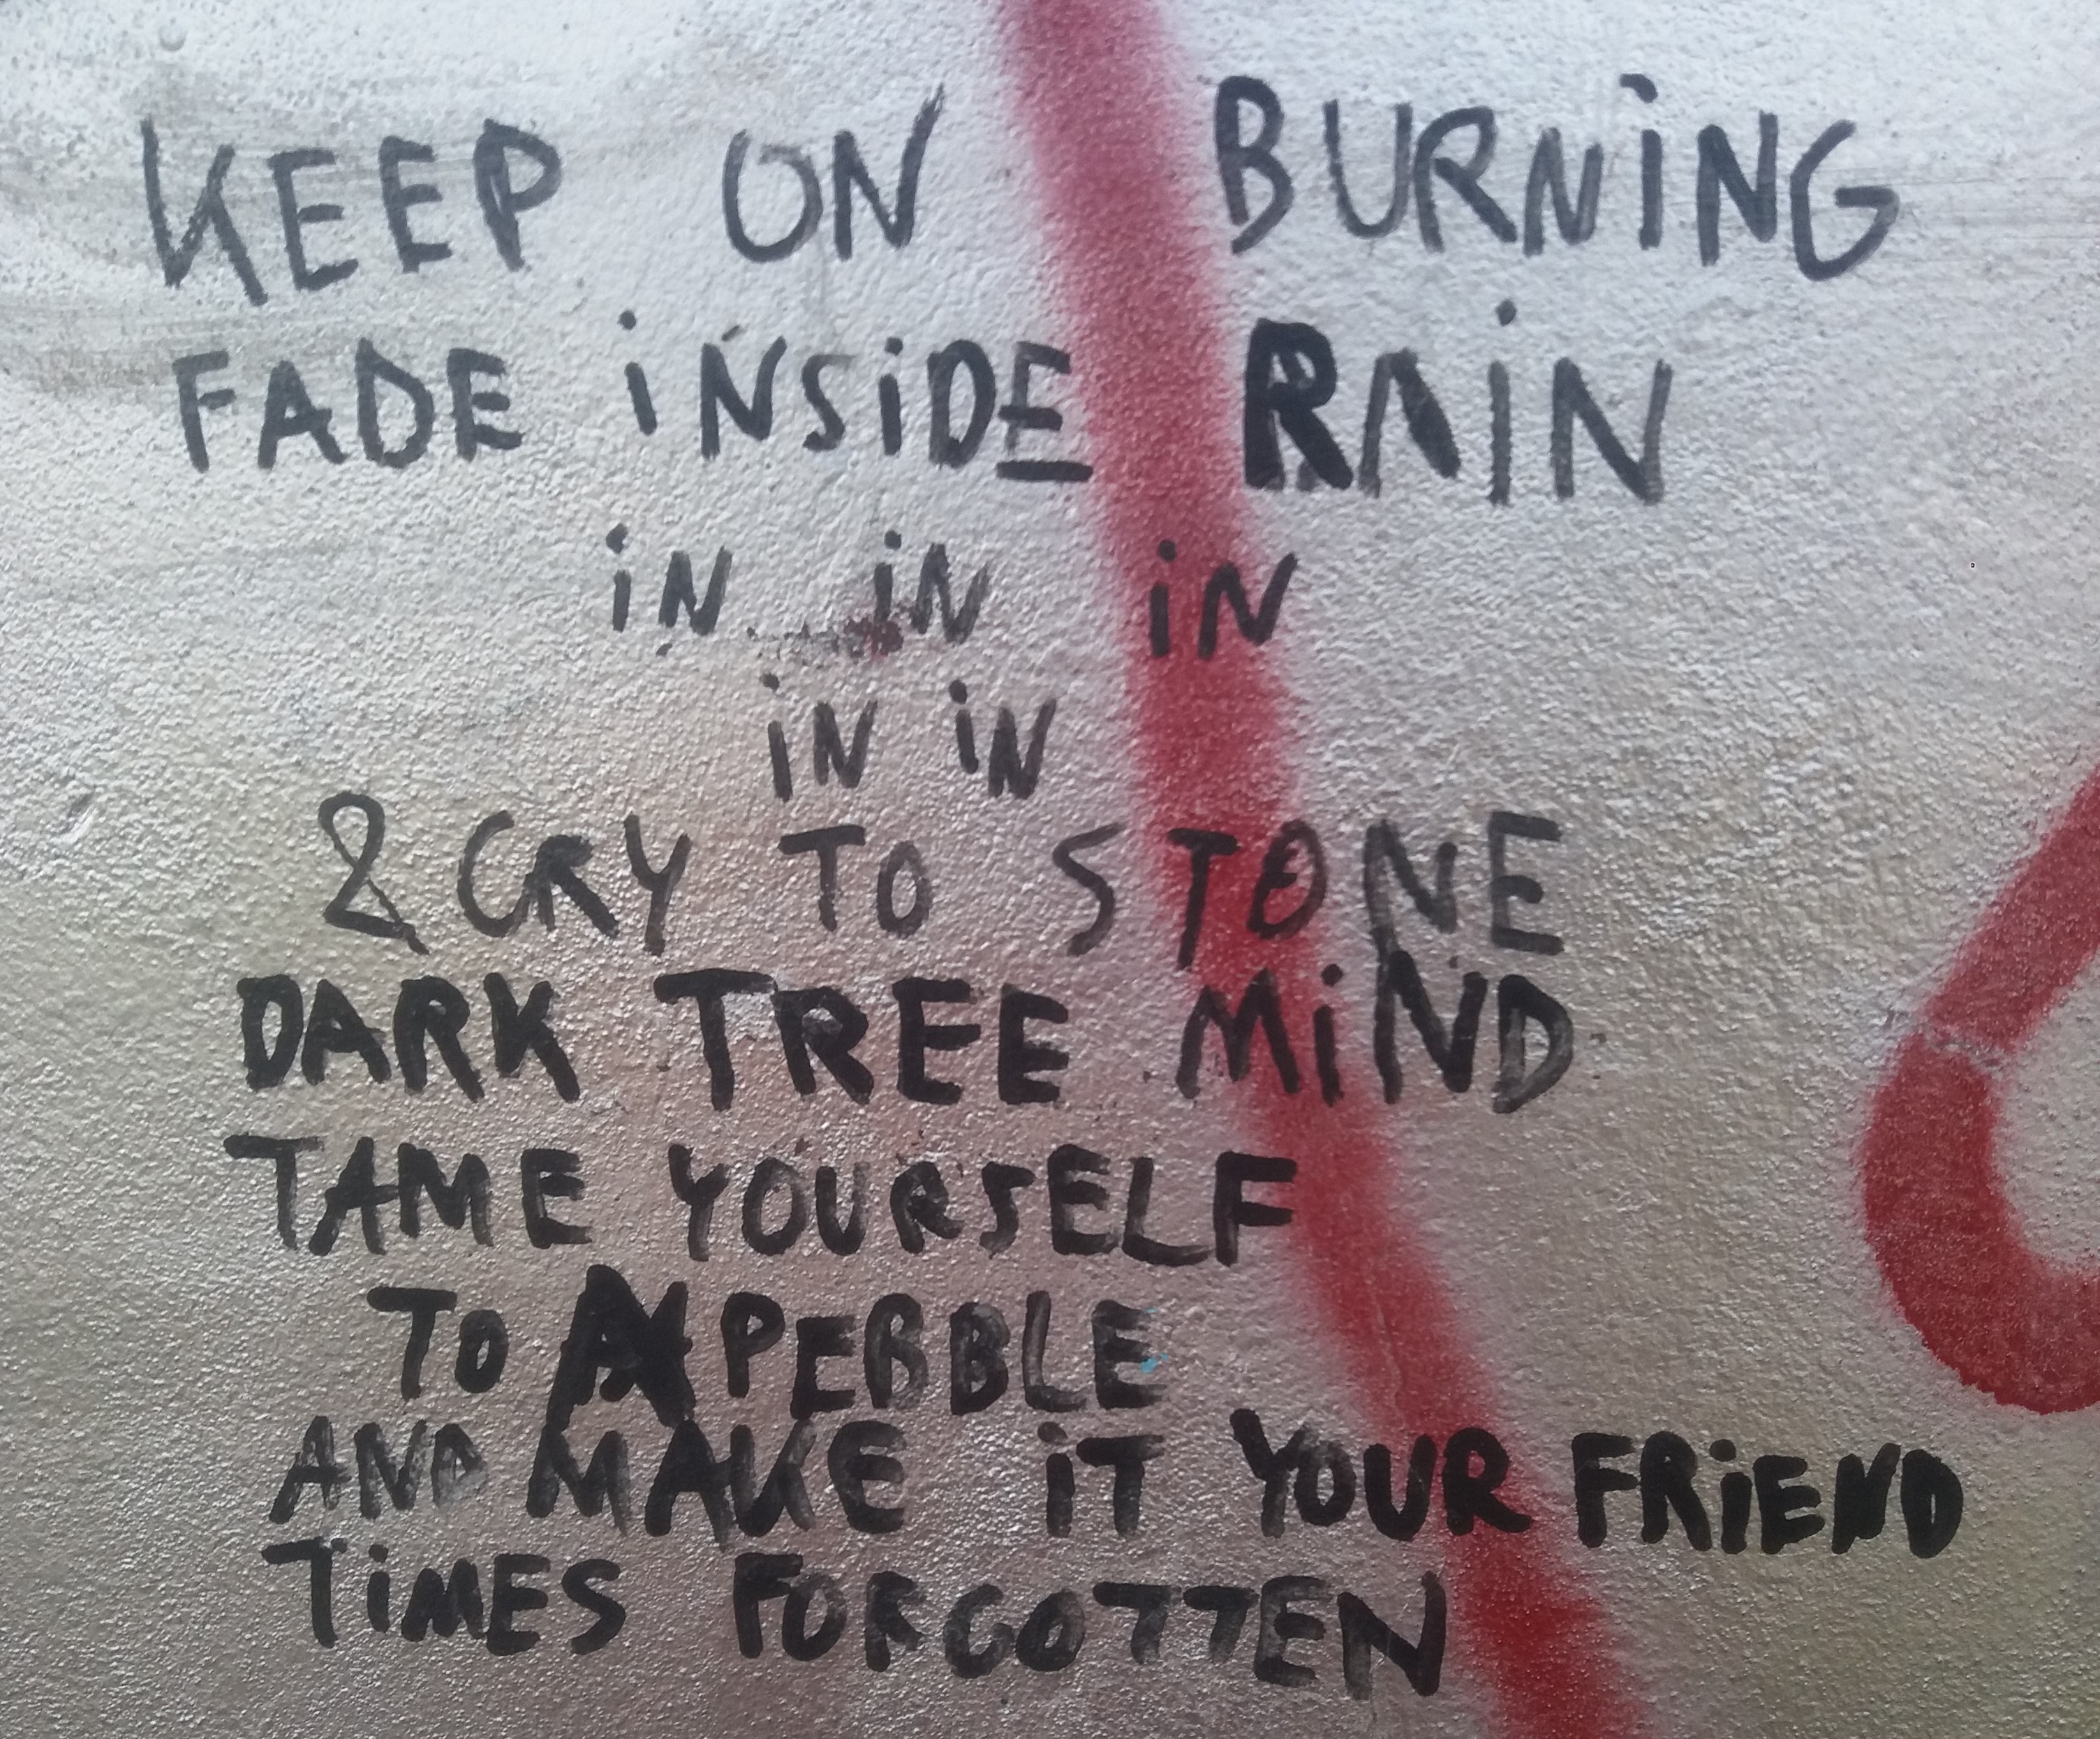 KEEP ON BURNiNG
FADE iNSiDE RAiN
iN iN iN
iN iN
& CRY TO STONE
DARK TREE MiND
TAME YOURSELF
TO A PEBBLE
AND MAKE iT YOUR FRiEND
TiMES FORGOTTEN